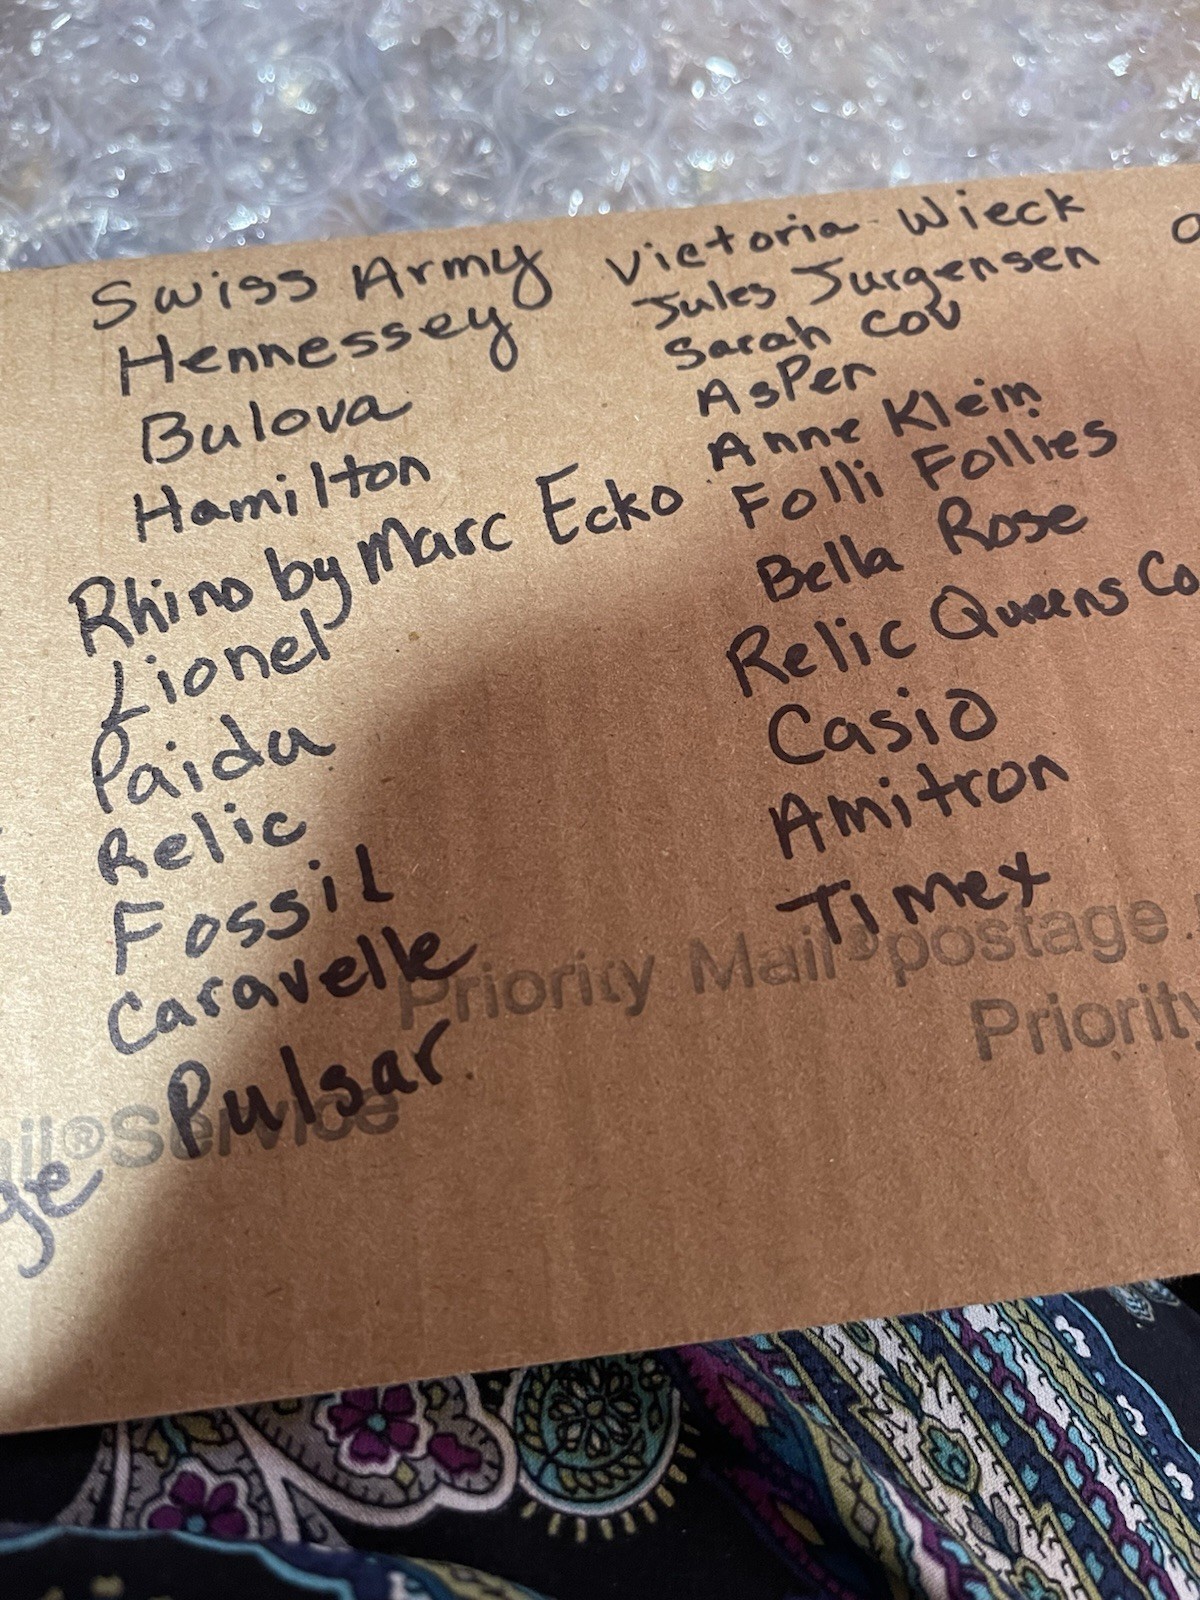 Swiss Army
Hennessey
Bulova
Hamilton
Rhino by Marc Ecko
Lionel
Paida
Relic
Fossil
Caravelle
Pulsar
Victoria Wieck
Jules Jurgensen
Sarah Cov
AsPen
Anne Klein
Folli Follies
Bella Rose
Relic Queens Co
Casio
Amitron
Timex
Priority Mail® postage
Priority
ail® Service
ge